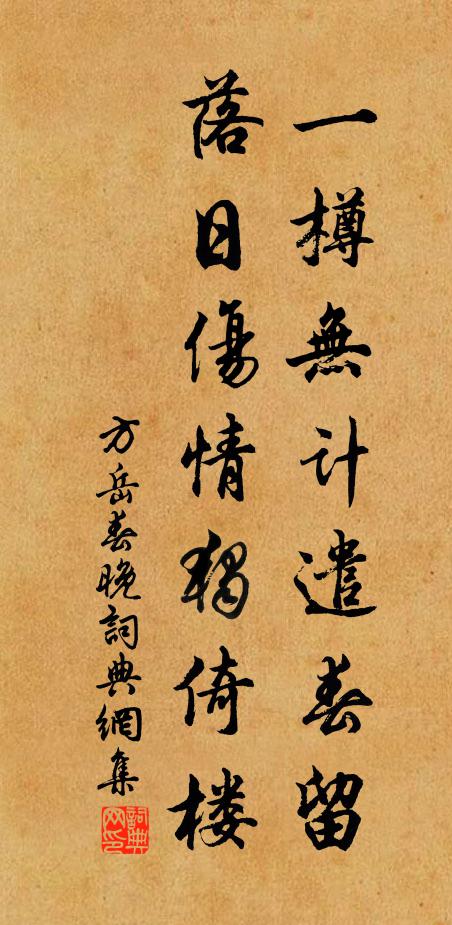 一樽無計遣春留
落日傷情獨倚楼
方岳春晚詞典網集
詞典网印